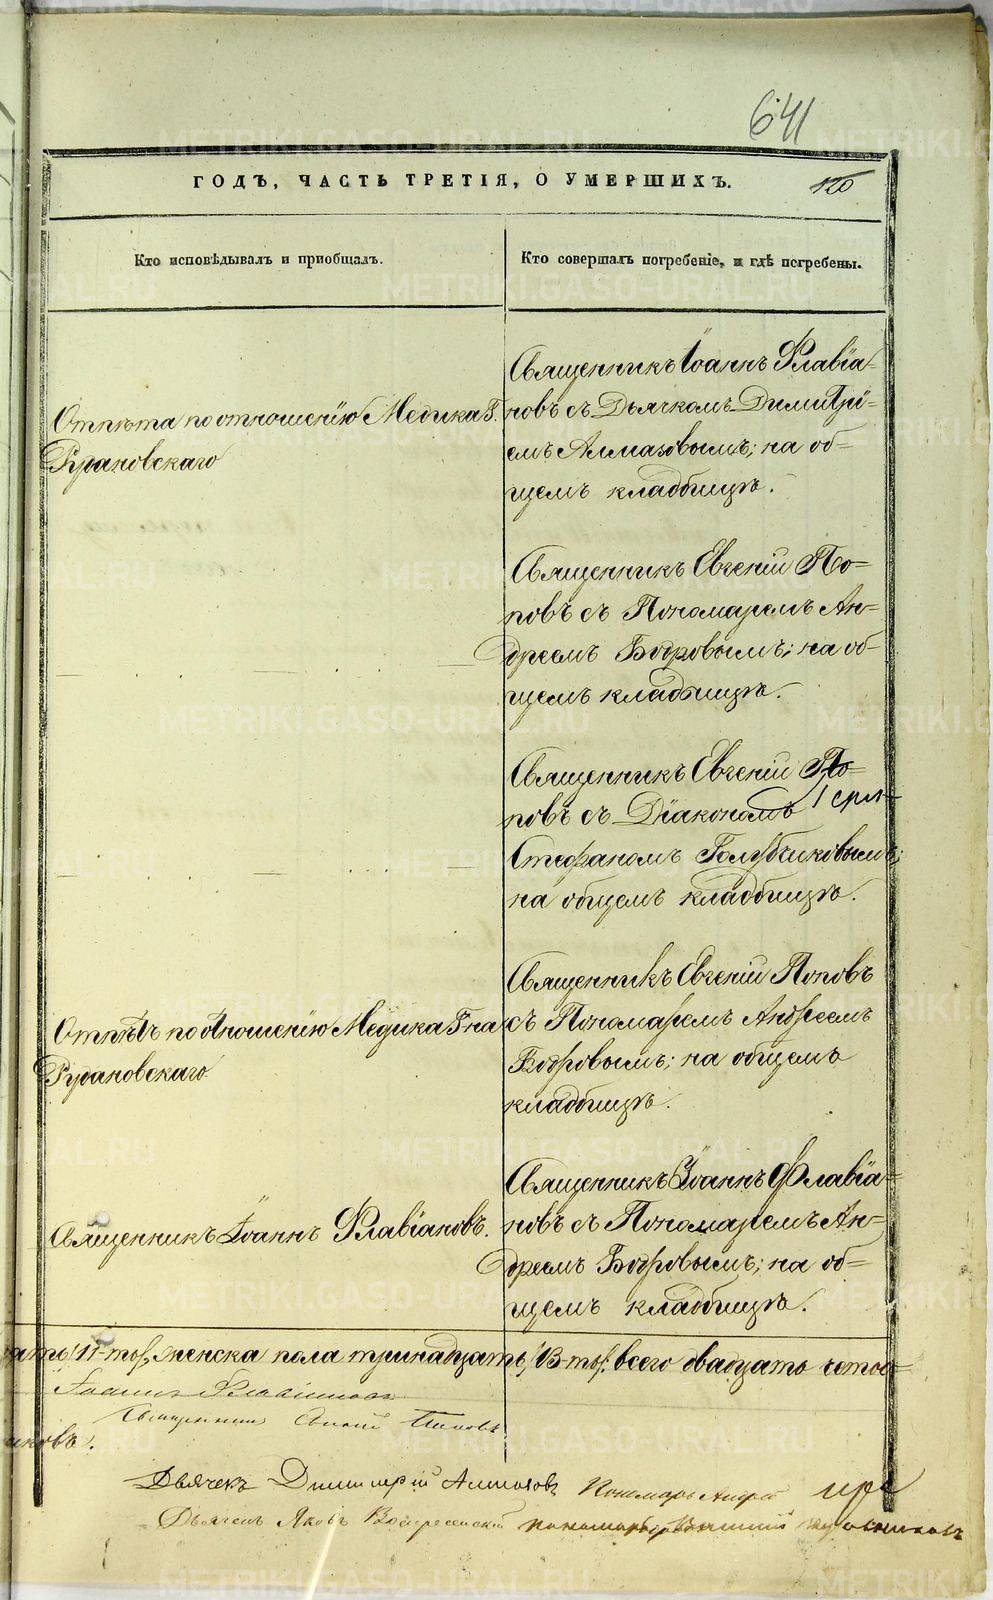 641
ГОДЪ, ЧАСТЬ ТРЕТІЯ, О УМЕРШИХЪ.
120
Кто исповѣдывалъ и пріобщалъ.
Кто совершалъ погребеніе, и гдѣ погребены.
Отпѣта по отношенію Медика Г.
Рудановскаго
Священникъ Іоаннъ Флавіа-
новъ съ Дьячкомъ Димитрі-
емъ Алмазовымъ; на об-
щемъ кладбищѣ.
Священникъ Евгеній По-
повъ съ Пономаремъ Ан-
дреемъ Бодровымъ; на об-
щемъ кладбищѣ.
Священникъ Евгеній По-
повъ съ Діакономъ
Стефаномъ Голубчиковымъ;
на общемъ кладбищѣ.
Отпѣтъ по отношенію Медика Г-на
Рудановскаго
Священникъ Евгеній Поповъ
съ Пономаремъ Андреемъ
Бодровымъ; на общемъ
кладбищѣ.
Священникъ Іоаннъ Флавіановъ.
Священникъ Іоаннъ Флавіа-
новъ съ Пономаремъ Ан-
дреемъ Бодровымъ; на об-
щемъ кладбищѣ.
11-ть, женска пола тринадцать 13-ть, всего двадцать четы-
Іоаннъ Флавіановъ
Священникъ Поповъ
Дьячекъ Димитрій Алмазовъ Пономарь Андрей
Дьячекъ Яковъ Воскресенскій пономарь
METRIKI.GASO-URAL.RU